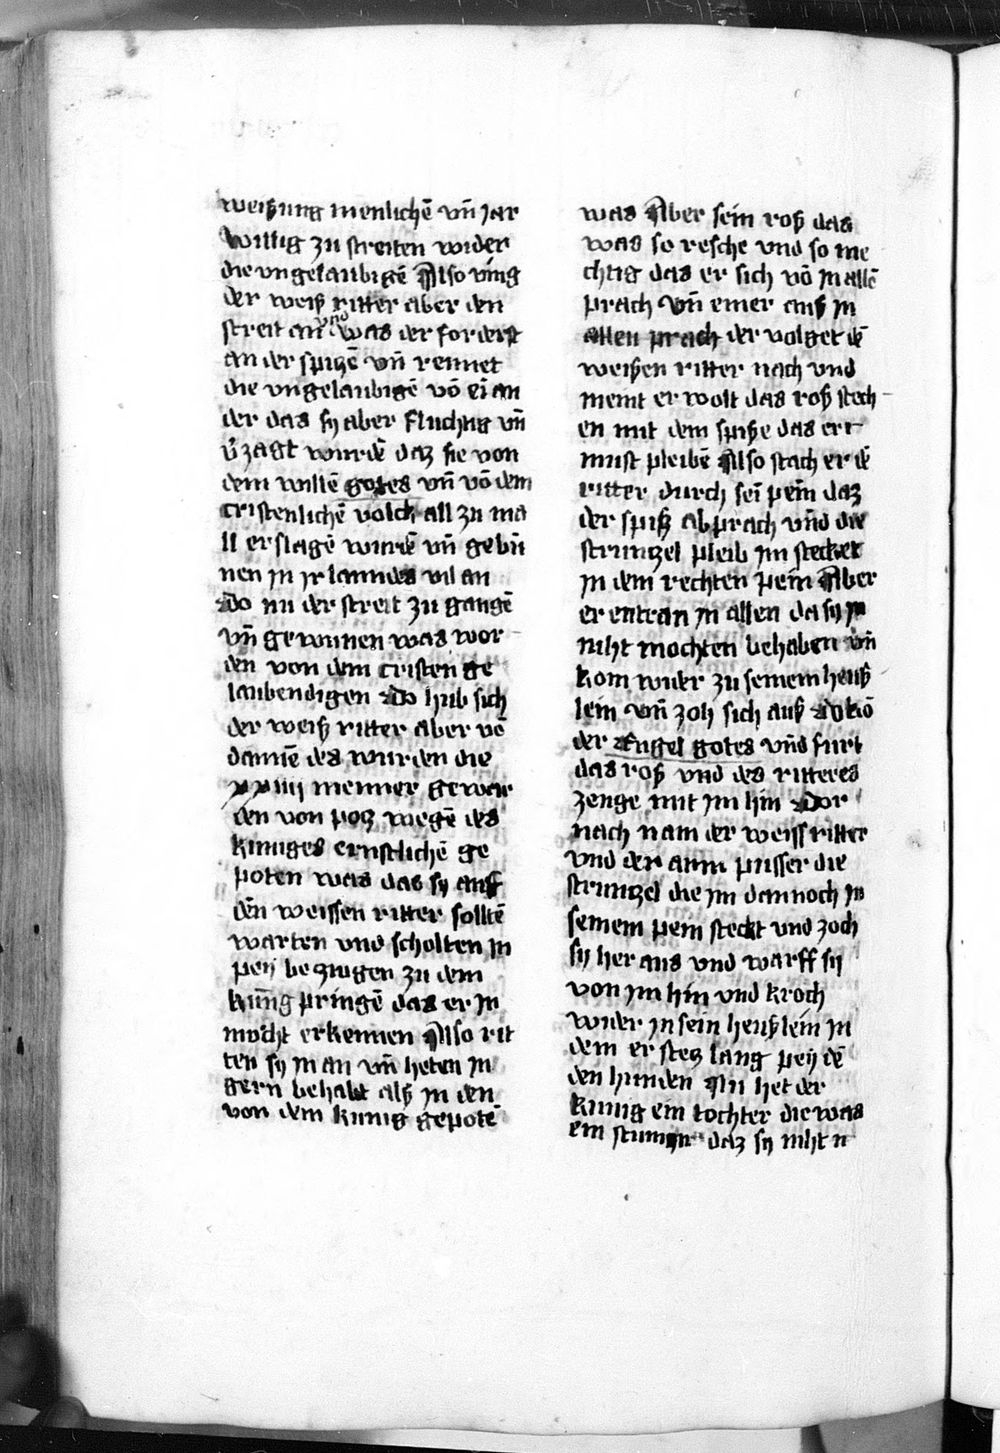 weißung menlichē vn̄ jar
willig zu streiten wider
die vngelaubigē Also ving
der weiß ritter aber den
streit an vnd was der forderst
an der spiczē vn̄ rennet
die vngelaubigē vō ein an
der das sy aber fluchtig vn̄
v̾zagt wurdē daz sie von
dem willē gotes vn̄ vō dem
cristenlichē volck all zu ma
ll erslagē wurdē vn̄ gebū
nen in ir lanndes vil an
Do nu der streit zu gangē
vn̄ gewunnen was wor
den von dem cristen ge
laubendigen Do hub sich
der weiß ritter aber vō
dannē des wurden die
xxiiii menner gewar
den von potz wegē des
kuniges ernstlichē ge
poten was das sy auff
den weissen ritter solltē
warten vnd scholten in
peij beczwgen zu dem
kunig pringē das er in
mocht erkennen Also rit
ten sy in an vn̄ heten in
gern behabt alß in den
von dem kunig gepotē
was Aber sein roß das
was so resche vnd so me
chtig das er sich vō in allē
prach vn̄ einer auß in
allen prach der volget dē
weißen ritter nach vnd
meint er wolt das roß stech
en mit dem spiße das err
must pleibē Also stach er dē
ritter durch sei pein daz
der spiß abprach vnd die
strunzel pleib im stecket
in dem rechten pein Aber
er entran in allen da sy in
niht mochten behaben vn̄
kom wider zu seinem heuß
lein vn̄ zoh sich auß Do kō
der Engel gotes vnd furt
das roß vnd des ritteres
zeuge mit im hin Dor
nach nam der weiss ritter
vnd der arm pusser die
strunzel die im dannoch in
seinem pein steckt vnd zoch
sy her aus vnd warff sy
von im hin vnd kroch
wider in sein heußlein in
dem er stetz lang peij dē
den hunden Nu het der
kunig ein tochter die was
ein stumyn daz sy niht n